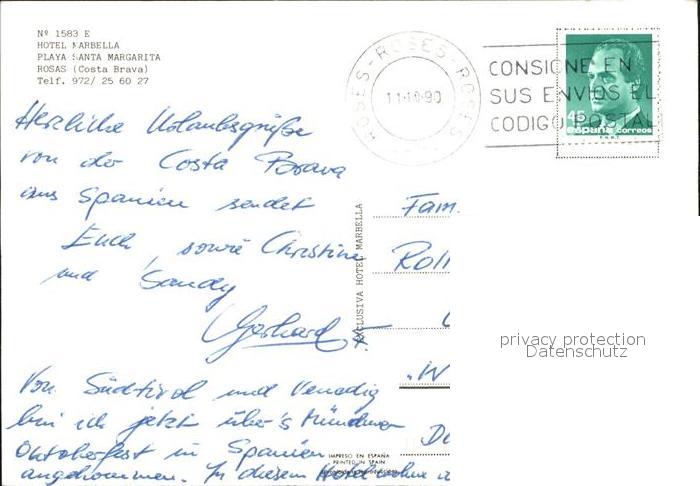 Nº 1583 E
HOTEL MARBELLA
PLAYA SANTA MARGARITA
ROSAS (Costa Brava)
Telf. 972/ 25 60 27
ROSES - ROSES - ROSES
11-10-90
CONSIGNE EN
SUS ENVIOS EL
CODIGO POSTAL
45
españa correos
Herzliche Urlaubsgrüße
von der Costa Brava
aus Spanien sendet
Euch, sowie Christine
und Sandy
Gerhard
Von Südtirol und Venedig
bin ich jetzt über's Münchner
Oktoberfest in Spanien
angehommen. In diesem Hotel wohne i
EXCLUSIVA HOTEL MARBELLA
Fam.
Roll
"W
IMPRESO EN ESPAÑA
PRINTED IN SPAIN
privacy protection
Datenschutz